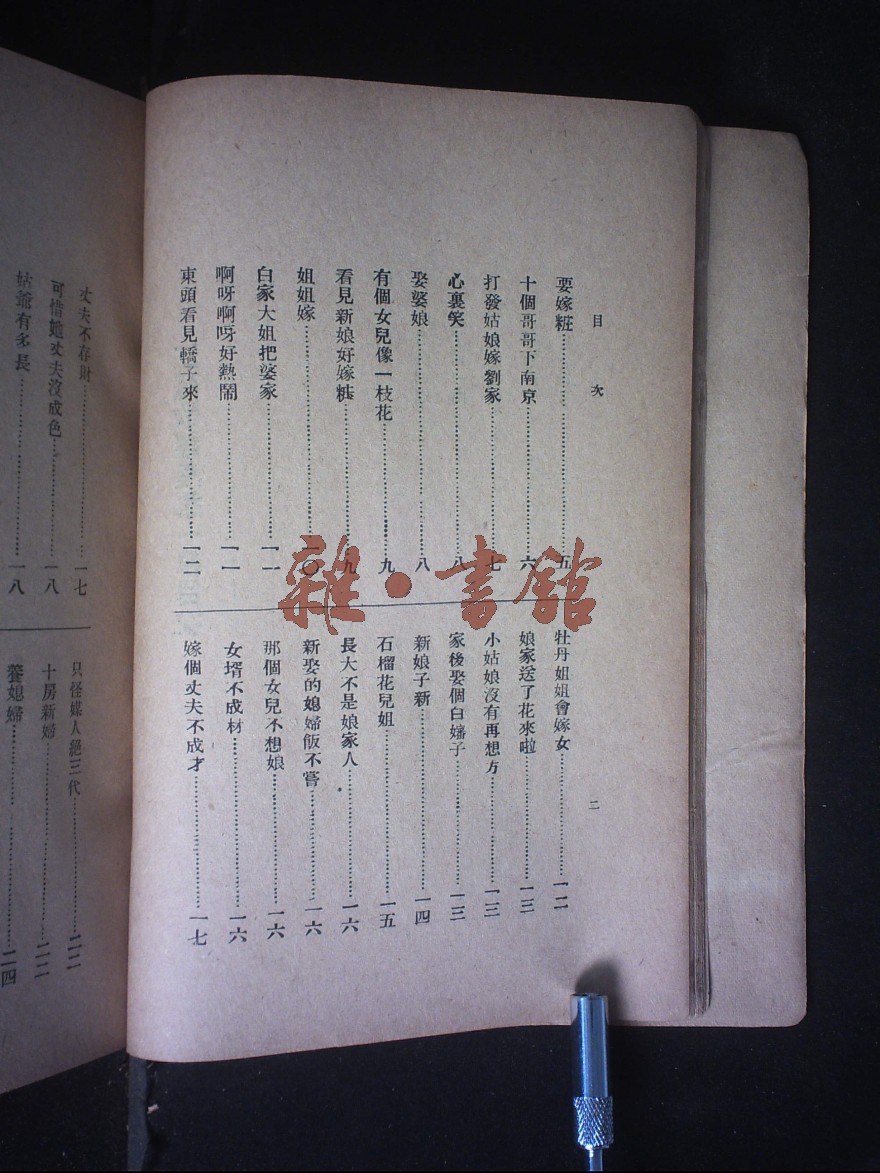 目次
二
要嫁粧……五
十個哥哥下南京……六
打發姑娘嫁劉家……七
心裏笑……八
娶婆娘……八
有個女兒像一枝花……九
看見新娘好嫁粧……九
姐姐嫁……一〇
白家大姐把婆家……一一
啊呀啊呀好熱鬧……一一
東頭看見轎子來……一二
牡丹姐姐會嫁女……一二
娘家送了花來啦……一三
小姑娘沒有再想方……一三
家後娶個白嬸子……一三
新娘子新……一四
石榴花兒姐……一五
長大不是娘家人……一六
新娶的媳婦飯不嘗……一六
那個女兒不想娘……一六
女壻不成材……一六
嫁個丈夫不成才……一七
丈夫不存財……一七
可惜她丈夫沒成色……一八
姑爺有多長……一八
只怪媒人絕三代……二二
十房新婦……二二
養媳婦……二四
雜·書館